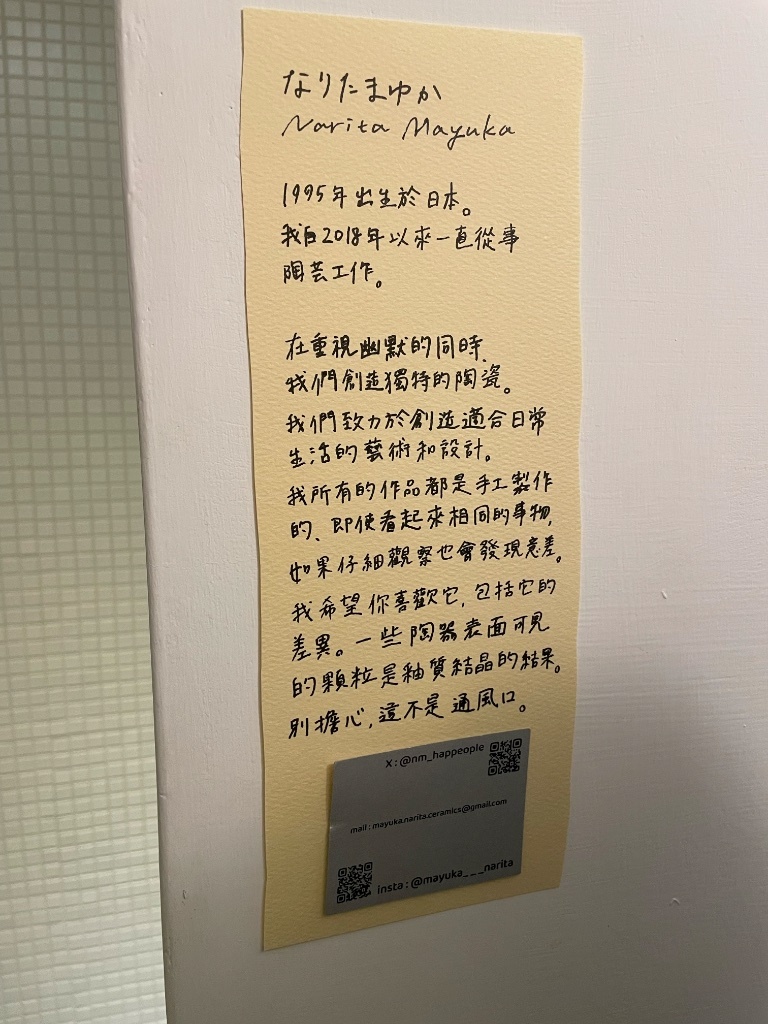 なりたまゆか
Narita Mayuka
1995年出生於日本。
我自2018年以來一直從事
陶芸工作。
在重視幽默的同時、
我們創造獨特的陶瓷。
我們致力於創造適合日常
生活的藝術和設計。
我所有的作品都是手工製作
的、即使看起來相同的事物,
如果仔細觀察也會發現意差。
我希望你喜歡它, 包括它的
差異。一些陶器表面可見
的顆粒是釉質結晶的結果。
別擔心, 這不是通風口。
X : @nm_happeople
mail : mayuka.narita.ceramics@gmail.com
insta : @mayuka___narita